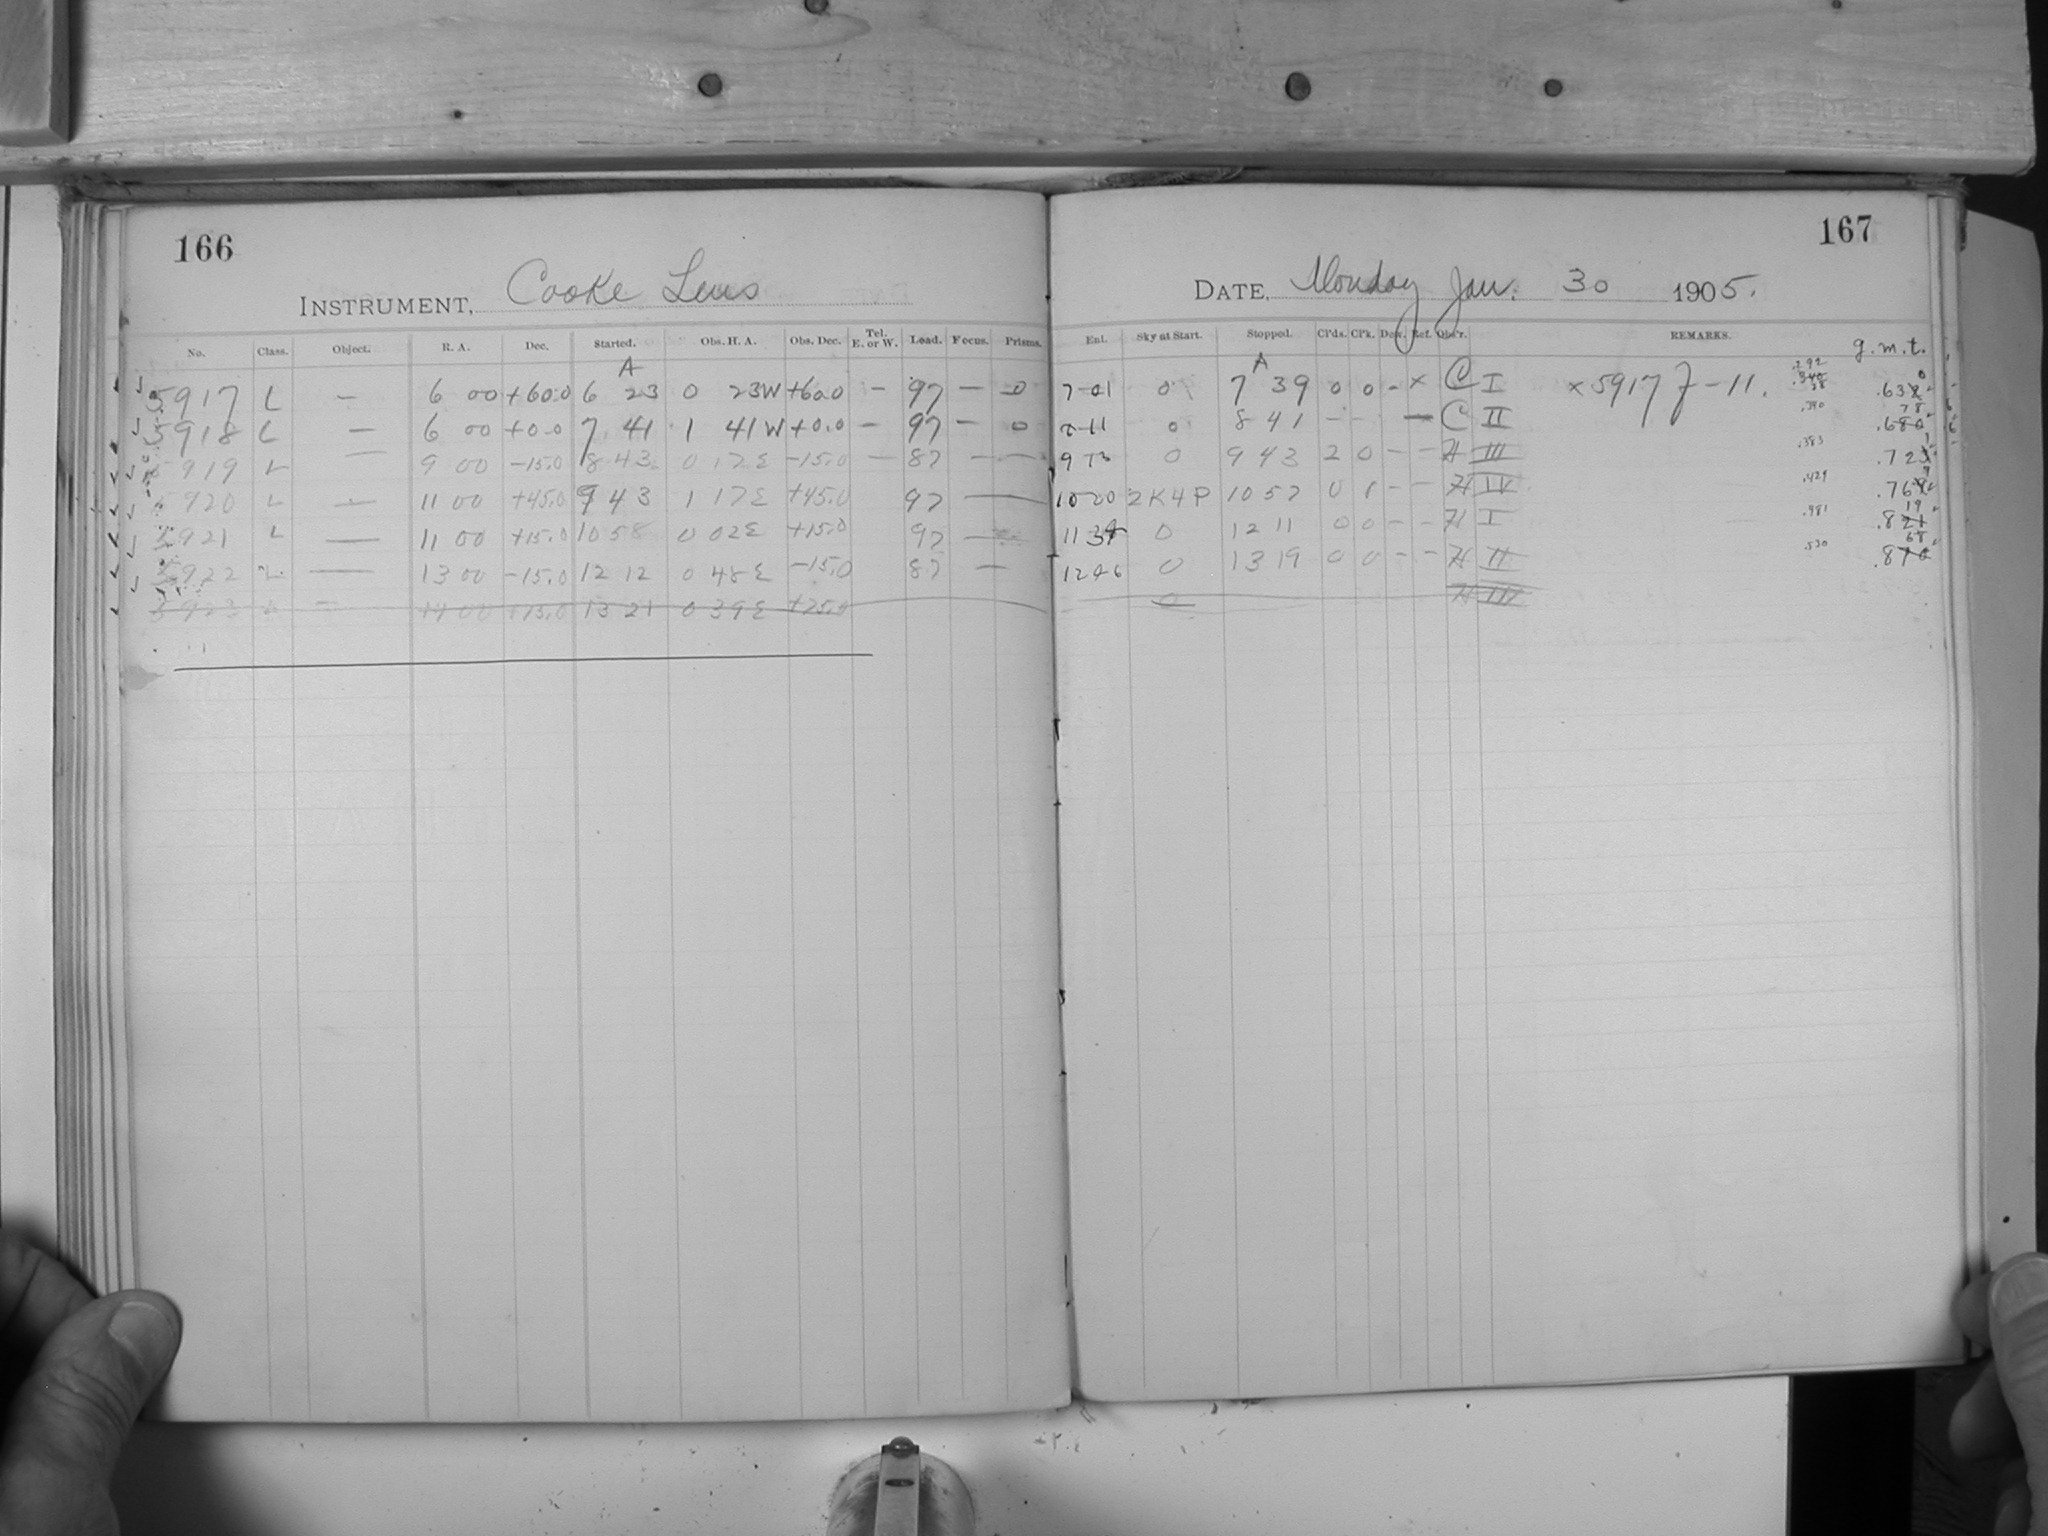 166
INSTRUMENT, Cooke Lens
No. Class. Object. R. A. Dec. Started. Obs. H. A. Obs. Dec. Tel. E. or W. Load. Focus. Prisms.
A
5917 L — 6 00 +60.0 6 23 0 23W +60.0 — 97 — 0
5918 L — 6 00 +0.0 7 41 1 41W +0.0 — 97 — 0
5919 L — 9 00 -15.0 8 43 0 17E -15.0 — 87 — —
5920 L — 11 00 +45.0 9 43 1 17E +45.0 97 —
5921 L — 11 00 +15.0 10 58 0 02E +15.0 97 —
5922 L — 13 00 -15.0 12 12 0 48E -15.0 87 —
5923 L — 14 00 13 21 0 39E
167
DATE, Monday Jan. 30 1905.
Enl. Sky at Start. Stopped. Cl'ds. Cl'k. Dew. Ref. Obs'r. REMARKS.
g.m.t.
A
7-01 0 7 39 0 0 - x C I x5917 J-11. .292 .63
0 8 41 - - — C II .340 .68 78
9 13 0 9 43 2 0 - - H III .383 .72
10 20 2K4P 10 57 0 1 - - H IV .429 .76
11 34 0 12 11 0 0 - - H I .481 .821 19
12 46 0 13 19 0 0 - - H II .530 .870 68
0 H III